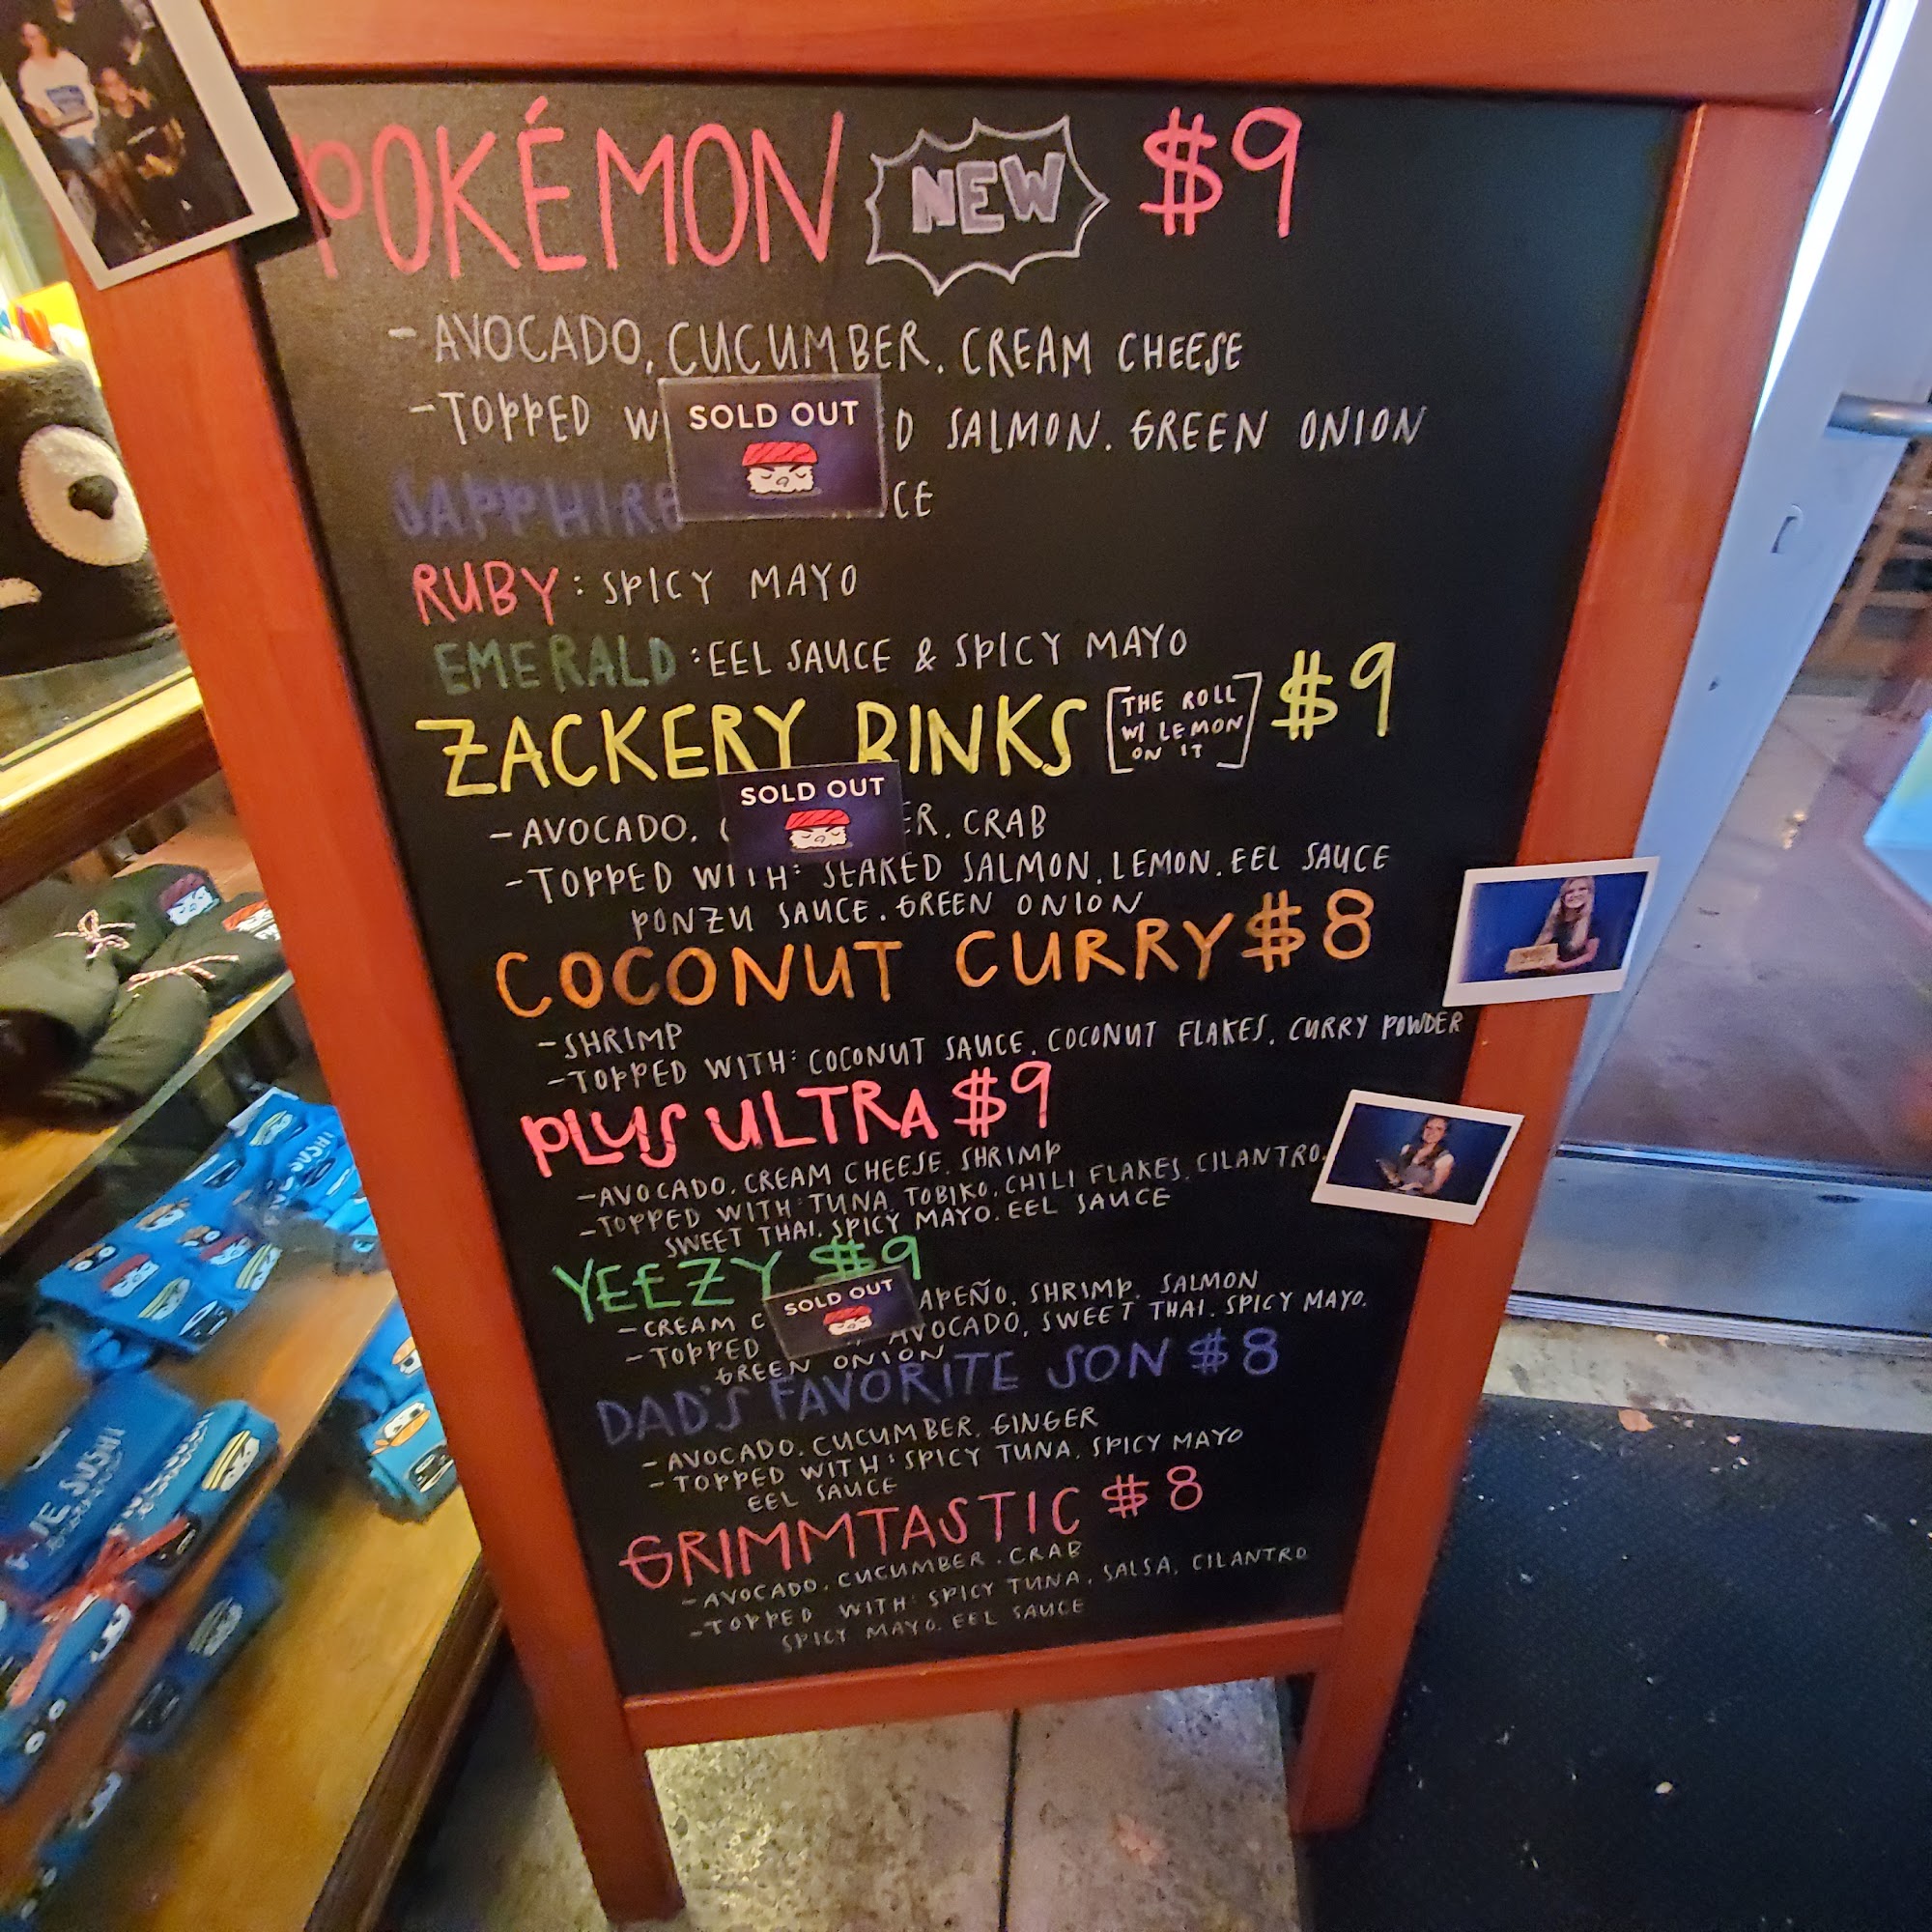 POKÉMON NEW $9
- AVOCADO, CUCUMBER, CREAM CHEESE
- TOPPED W D SALMON, GREEN ONION
SOLD OUT
SAPPHIRE CE
RUBY: SPICY MAYO
EMERALD: EEL SAUCE & SPICY MAYO
ZACKERY BINKS [THE ROLL W/ LEMON ON IT] $9
SOLD OUT
- AVOCADO, C ER, CRAB
- TOPPED WITH: SEARED SALMON, LEMON, EEL SAUCE
PONZU SAUCE, GREEN ONION
COCONUT CURRY $8
- SHRIMP
- TOPPED WITH: COCONUT SAUCE, COCONUT FLAKES, CURRY POWDER
PLUS ULTRA $9
- AVOCADO, CREAM CHEESE, SHRIMP
- TOPPED WITH: TUNA, TOBIKO, CHILI FLAKES, CILANTRO,
SWEET THAI, SPICY MAYO, EEL SAUCE
YEEZY $9
SOLD OUT
- CREAM C APEÑO, SHRIMP, SALMON
- TOPPED AVOCADO, SWEET THAI, SPICY MAYO,
GREEN ONION
DAD'S FAVORITE SON $8
- AVOCADO, CUCUMBER, GINGER
- TOPPED WITH: SPICY TUNA, SPICY MAYO
EEL SAUCE
GRIMMTASTIC $8
- AVOCADO, CUCUMBER, CRAB
- TOPPED WITH: SPICY TUNA, SALSA, CILANTRO
SPICY MAYO, EEL SAUCE
SUSHI
SUSHI